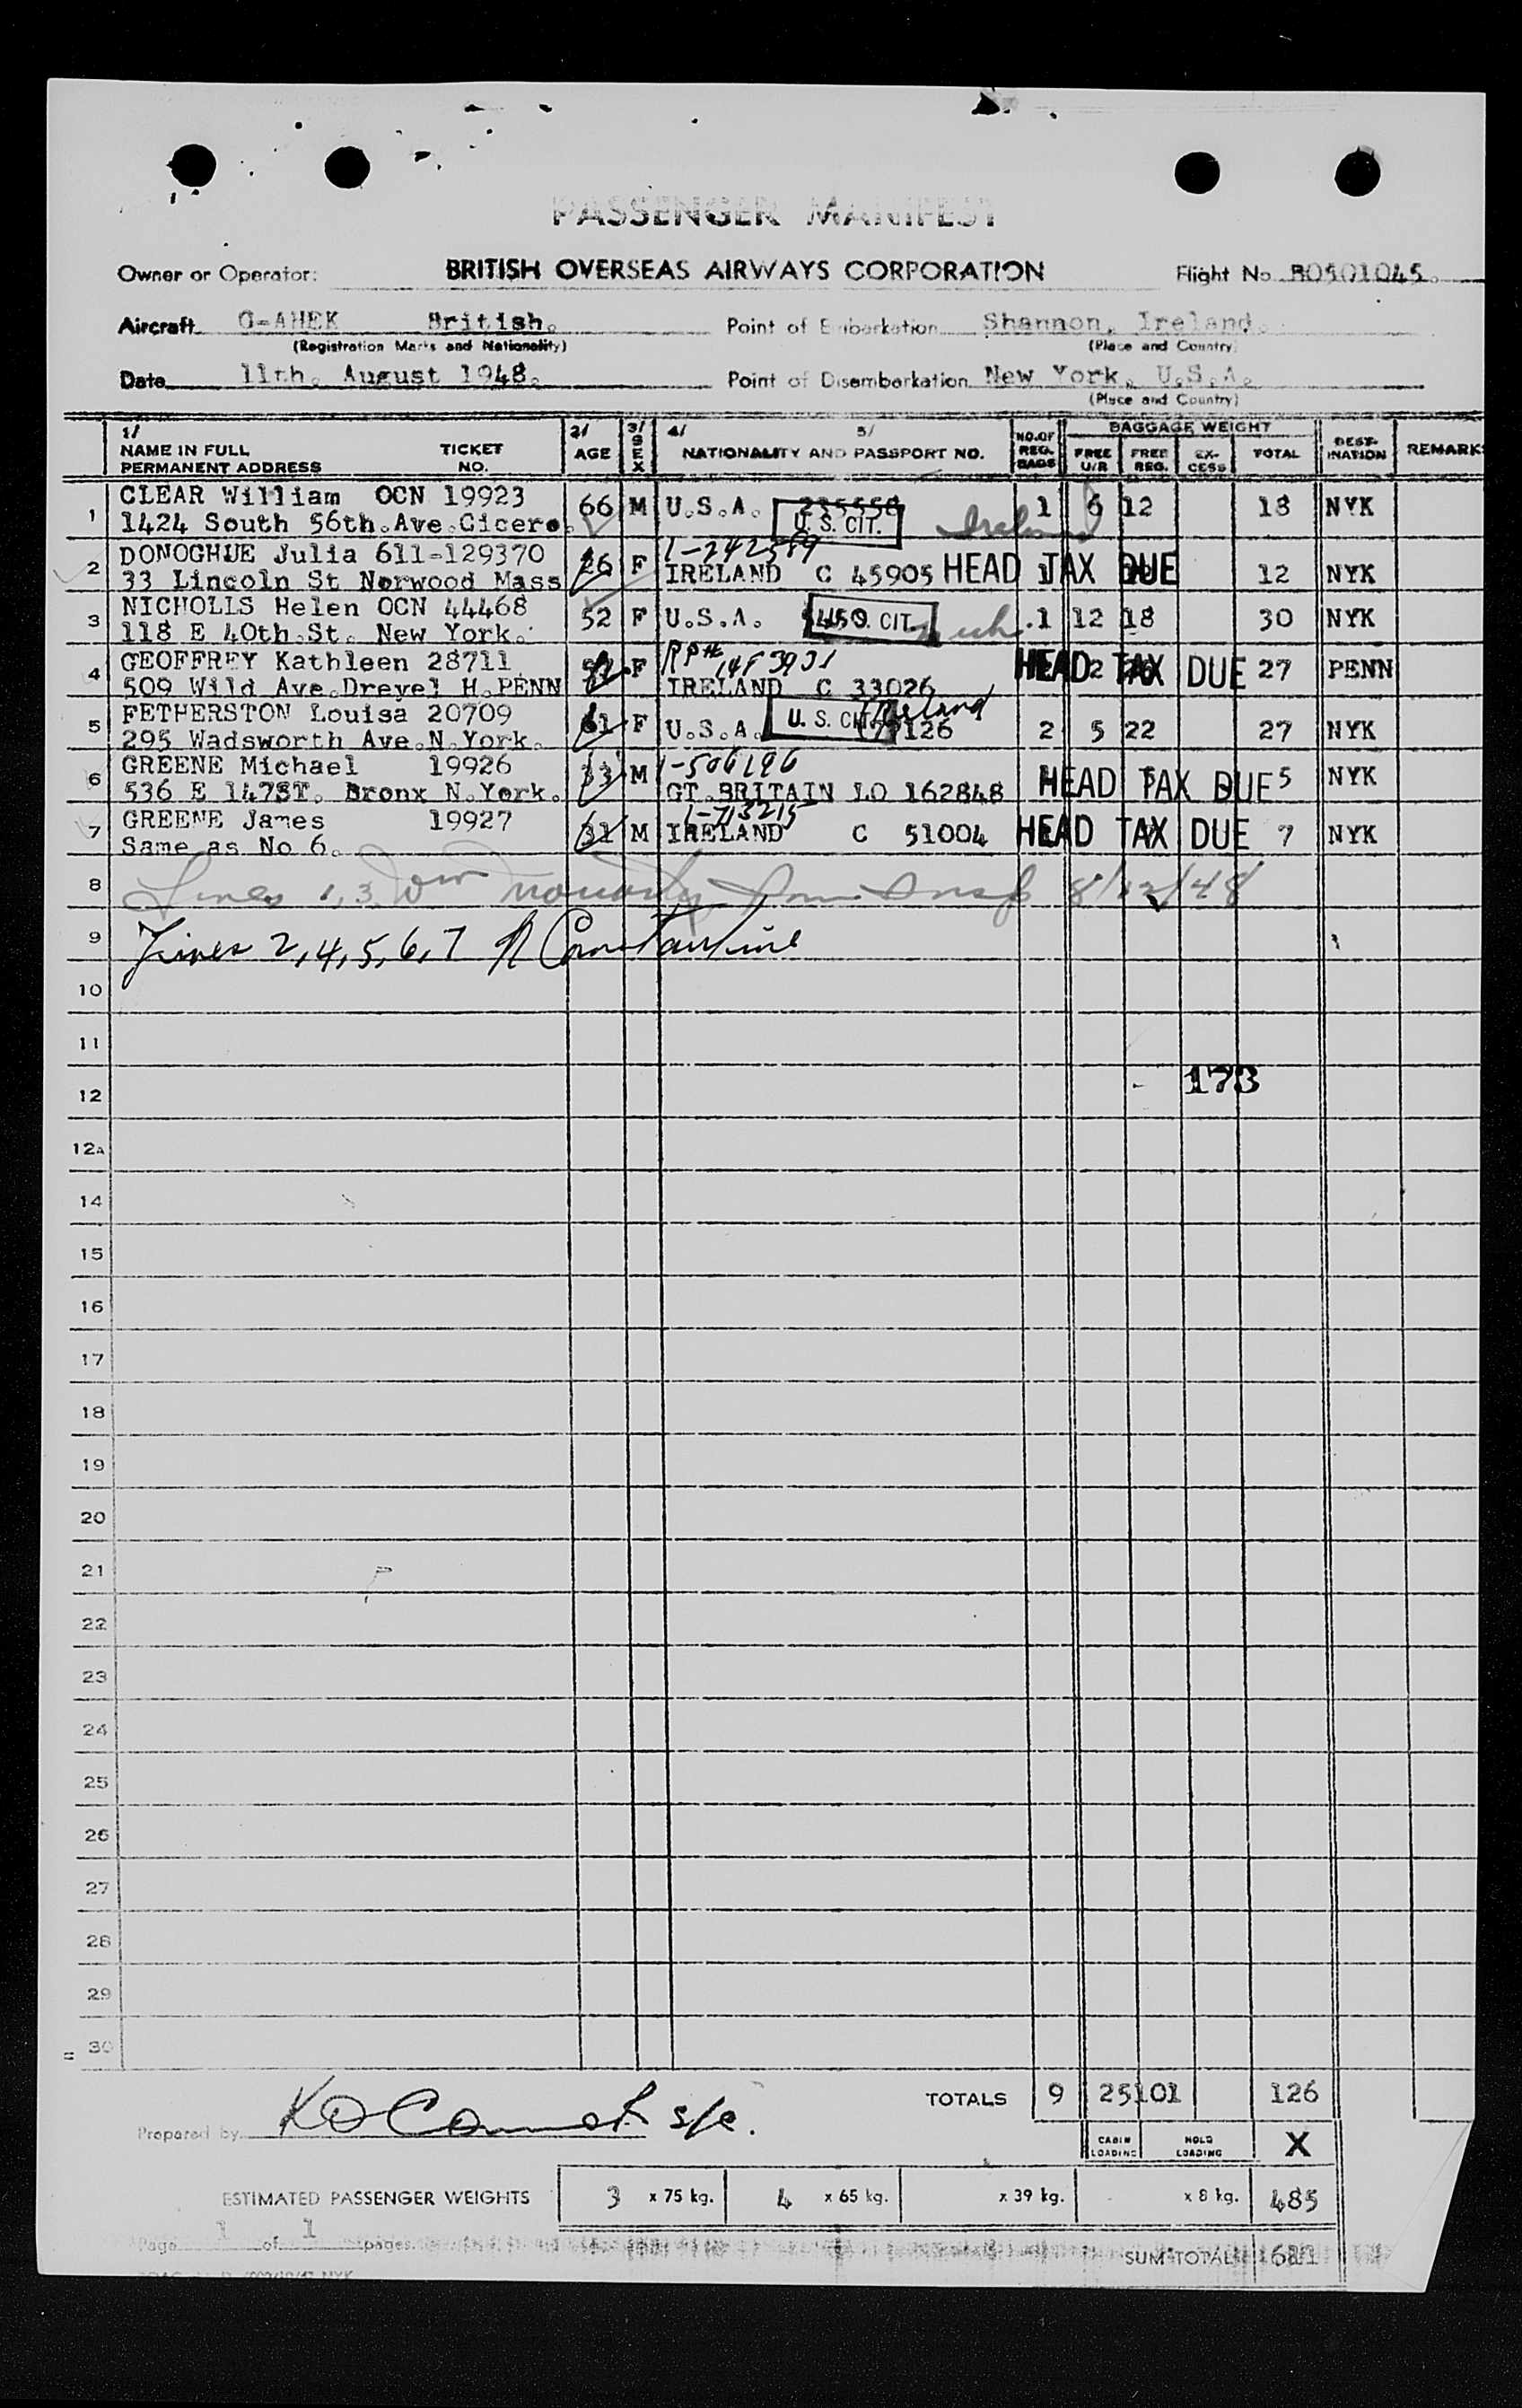 PASSENGER MANIFEST
Owner or Operator: BRITISH OVERSEAS AIRWAYS CORPORATION Flight No. BO501045.
Aircraft G-AHEK British. Point of Embarkation Shannon, Ireland.
(Registration Marks and Nationality) (Place and Country)
Date 11th. August 1948. Point of Disembarkation New York, U.S.A.
(Place and Country)
1/ 2/ 3/ 4/ 5/ BAGGAGE WEIGHT
NAME IN FULL TICKET AGE SEX NATIONALITY AND PASSPORT NO. NO. OF REG. BAGS FREE U/R FREE REG. EX-CESS TOTAL DEST-INATION REMARKS
PERMANENT ADDRESS NO.
1 CLEAR William OCN 19923 66 M U.S.A. 235558 U.S. CIT. Ireland 1 6 12 18 NYK
1424 South 56th.Ave.Cicero.
2 DONOGHUE Julia 611-129370 26 F 1-242589 1 12 NYK
33 Lincoln St Norwood Mass IRELAND C 45905 HEAD TAX DUE
3 NICHOLLS Helen OCN 44468 52 F U.S.A. U.S. CIT. 1 12 18 30 NYK
118 E 40th.St. New York.
4 GEOFFREY Kathleen 28711 F HEAD TAX DUE 2 27 PENN
509 Wild Ave.Drexel H.PENN IRELAND C 33026
5 FETHERSTON Louisa 20709 61 F U.S.A. U.S. CIT. Ireland 2 5 22 27 NYK
295 Wadsworth Ave.N.York.
6 GREENE Michael 19926 33 M 1-506196 HEAD TAX DUE 5 NYK
536 E 147ST. Bronx N.York. GT.BRITAIN LO 162848
7 GREENE James 19927 31 M 1-713215 HEAD TAX DUE 7 NYK
Same as No 6. IRELAND C 51004
8 Lines 1, 3, Insp 8/12/48
9 Lines 2, 4, 5, 6, 7 Constantine
10
11
12 173
12A
14
15
16
17
18
19
20
21
22
23
24
25
26
27
28
29
30
TOTALS 9 25 101 126
Prepared by
CABIN LOADING HOLD LOADING X
ESTIMATED PASSENGER WEIGHTS 3 x 75 kg. 4 x 65 kg. x 39 kg. x 8 kg. 485
Page 1 of 1 pages
SUM TOTAL